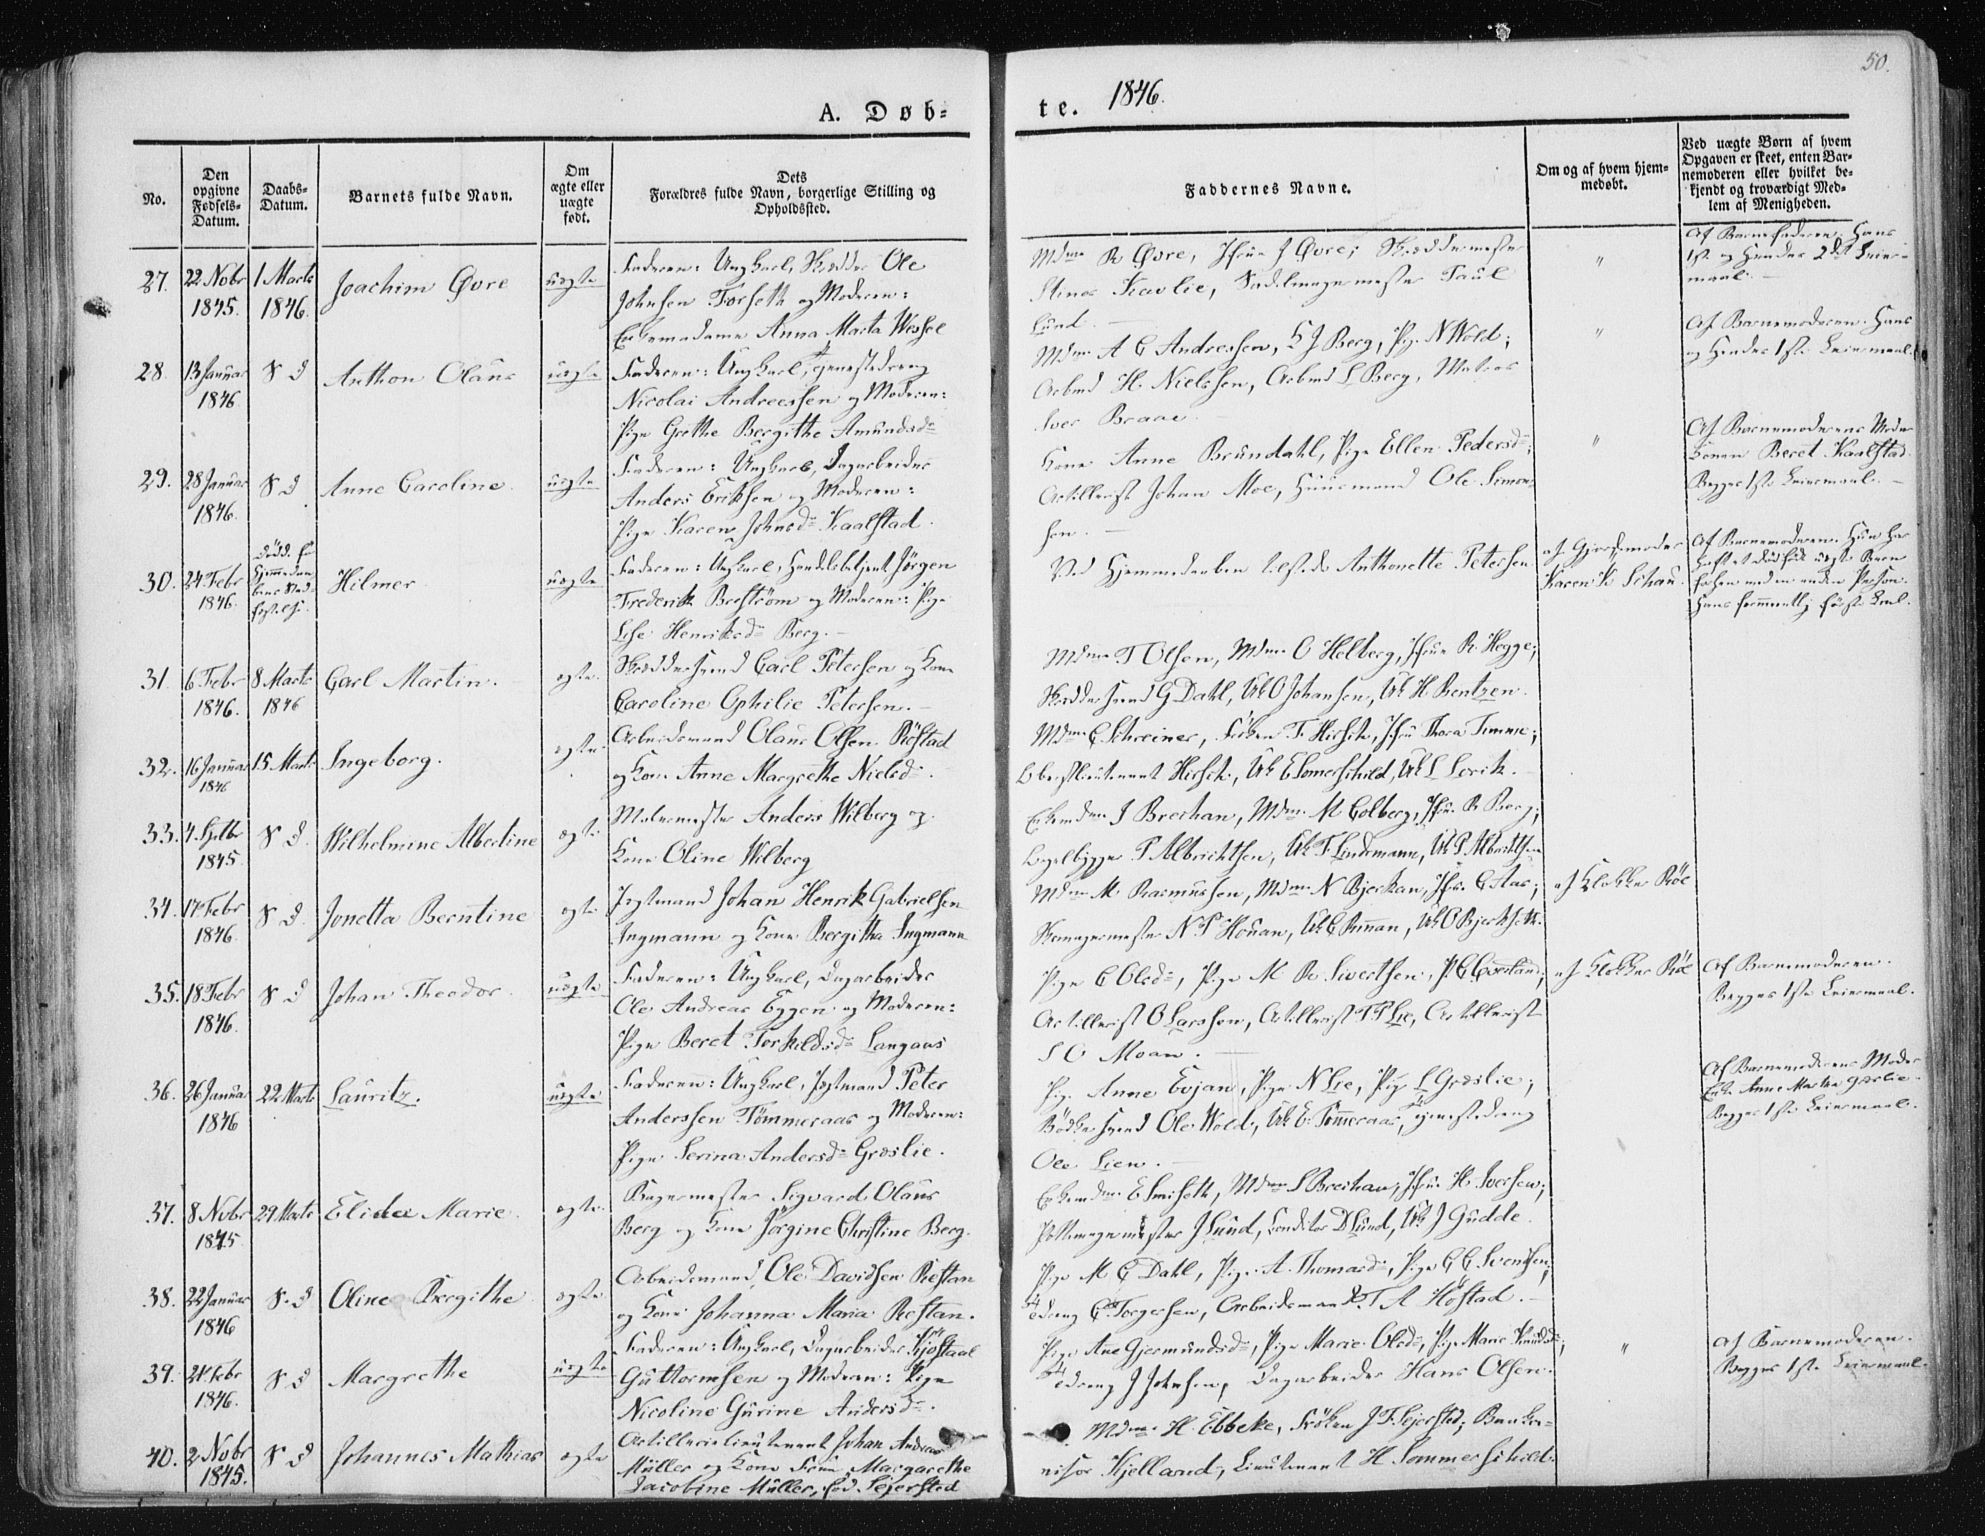 50.
A. Døb=
te. 1846.
No.
Den opgivne Fødsels-Datum.
Daabs-Datum.
Barnets fulde Navn.
Om ægte eller uægte født.
Dets Forældres fulde Navn, borgerlige Stilling og Opholdssted.
Faddernes Navne.
Om og af hvem hjemmedøbt.
Ved uægte Børn af hvem Opgaven er skeet, enten Barnemoderen eller hvilket bekjendt og troværdigt Medlem af Menigheden.
27. 22 Nobr 1845. 1 Marts 1846. Joachim Øvre uægte
Faderen: Ungkarl, Skrædder Ole
Johnsen Forseth og Moderen:
Enkemadame Anna Marta Wessel
Mdme R Øvre, Jfru J Øvre; Skræddermester
Kavlie, Sadelmagermester Paul
Lund.
"
Af Barnefaderen. Hans
1ste og Hendes 2det Leier-
maal.
28. 13 Januar 1846. S D Anthon Olaus uægte
Faderen: Ungkarl, Tjenestedreng
Nicolai Andreessen og Moderen:
Pige Grethe Bergithe Amundsdr
Mdme A C Andressen, K J Berg, Pig. N Wold;
Arbmd H. Nielssen, Arbmd L Berg, Matros
Iver Braae.
"
Af Barnemoderen. Hans
og Hendes 1ste Leiermaal.
29. 28 Januar 1846. S D Anne Caroline uægte
Faderen: Ungkarl, Dagarbeider
Anders Eriksen og Moderen:
Pige Karen Johnsdr Kaalstad.
Kone Anne Brundahl, Pige Ellen Pedersdr;
Artillerist Johan Moe, Huusmand Ole Simon-
sen.
"
Af Barnemoderens Moder
Konen Beret Kaalstad
Begges 1ste Leiermaal.
30. 24 Febr 1846. Hilmer uægte
Faderen: Ungkarl, Handelsbetjent Jørgen
Frederik Brestrøm og Moderen: Pige
Lise Henriksdr Berg.
Ved Hjemmedaaben tilstede Anthonette Petersen
af Gjordemoder
Karen K Schau.
Af Barnemoderen. Hun har
31. 6 Febr 1846. 8 Marts 1846 Carl Martin. ægte.
Skræddersvend Carl Petersen og Kone
Caroline Ophilie Petersen.
Mdme T Olsen, Mdme O Helberg, Jfru R. Hegge;
Skræddersvend G Dahl, Uk O Johansen, Uk H. Bentzen.
32. 16 Januar 1846 15 Marts Ingeborg. ægte.
Arbeidsmand Olaus Olsen Røstad
og Kone Anne Margrethe Nielsdr.
Mdme C. Schreiner, Frøken F. Hirsch, Jfru Thora Timme;
Oberstlieutenant Hirsch, Uk E Somerschild, Uk L Lorck.
33. 1845. S D. Wilhelmine Albertine ægte.
Malermester Anders Wilberg og
Kone Oline Wilberg
Enkemdme J Brechan, Mdme M Colberg, Jfru R Berg;
P Albrichtsen, Uk F Lindemann, Uk P Albrichtsen
34. 17 Febr 1846. S D. Jonetta Berntine ægte.
Johan Henrik Gabrielsen
Ingmann og Kone Bergitha Ingmann
Mdme M Rasmussen, Mdme N Bjerkan, Jfru C Aas;
Skomagermester N P Houan, Uk C Rinnan, Uk O Bjerkseth.
af Klokker Röe
35. 18 Febr 1846. S D Johan Theodor. uægte
Faderen: Ungkarl, Dagarbeider
Ole Andreas Eggen og Moderen:
Pige Beret Torkildsdr Langaas
Pige C Olsdr, Pige M R Sivertsen, P. E Overland;
Artillerist O Larssen, Artillerist T P Lie, Artillerist
S O Moan.
af Klokker Röe
Af Barnemoderen.
Begges 1ste Leiermaal.
36. 26 Januar 1846 22 Marts Lauritz. uægte
Faderen: Ungkarl, Peter
Anderssen Tømmeraas og Moderen:
Pige Serina Andersdr Græslie.
Pig. Anne Evjan, Pige N Lie, Pige L Græslie;
Bødkersvend Ole Wold, Uk E. Tømmeraas, Tjenestedreng
Ole Lien.
Af Barnemoderens Moder
Enke Anne Martha Græslie.
Begges 1ste Leiermaal.
37. 8 Nobr 1845 29 Marts Elidee Marie ægte.
Bagermester Sigvard Olaus
Berg og Kone Jørgine Christine Berg.
Enkemdme E Smiseth, Mdme S Brechan, Jfru H. Iversen;
Pottemagermester J Lund, Conditor D Lund, Uk J Gudde.
38. 22 Januar 1846 S. D Oline Bergithe ægte
Arbeidsmand Ole Davidsen Restan
og Kone Johanna Maria Restan.
Pige M C Dahl, Pige A. Thomasdr, Pige C C Svendsen;
Tjdreng C Torgersen, Arbeidsmand T A Høstad.
39. 24 Febr 1846. S D Margrethe uægte
Faderen: Ungkarl, Dagarbeider Kjøstaal
Guttormsen og Moderen: Pige
Nicoline Gurine Andersdr.
Pige Ane Gjermundsdr, Pige Marie Olsdr, Pige Marie Knudsdr;
Tjdreng J Johnsen, Dagarbeider Hans Olsen.
"
Af Barnemoderen.
Begges 1ste Leiermaal.
40. 2 Nobr 1845. S D Johannes Mathias ægte
Artillerielieutenant Johan Andreas
Müller og Kone Frue Margarethe
Jacobine Müller, fød Sejersted
Mdme H. Ebbeke, Frøken J F. Sejersted; Bankre-
visor Kjelland, Lieutenant H Sommerschield.